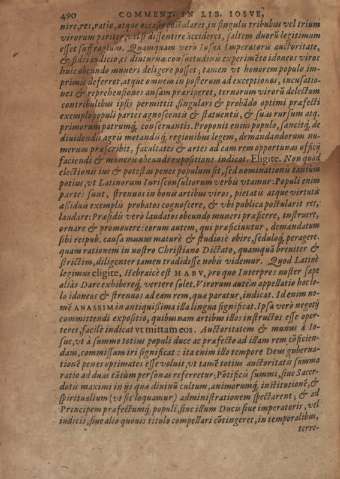 490 COMMENT. IN LIB. IOSVE,
nire, res, ratio, atque
verorum pariter, vel si dissentire acciderit, saltem duorũ legitimum
esset suffragium. Quamquam verò Iosue Imperatoria auctoritate,
& fide, indicio, et diuturna consuetudinis experimẽto idoneos viros
huic obeundo muneri deligere posset, tamen vt honorem populo im-
primis deferret, atque omnem in posterum ad exceptiones, incusatio-
nes & reprehensiones ansam præriperet, ternorum virorũ delectum
contribulibus ipsis permittit, singulari & probãdo optimi præfecti
exemplo populi partes agnoscentis & statuentis, & suas rursum atq.
primorum patrum q. conseruantis. Proponit enim populo, sancitq. de
diuidendis agris metandisq. regionibus legem, demandandorum nu-
merum præscribit, facultates & artes ad eam rem opportunas officij
faciendi & muneris obeundi expositione indicat. Eligite. Non quod
electionis ius & potestas penes populum sit, sed nominationis tantùm
potius, vt Latinorum iurisconsultorum verbis vtamur. Populi enim
parte sunt, strenuos in bonis artibus viros, pietatis atque virtutis
assiduis exemplis probatos cognoscere, & vbi publica postularit res,
laudare: Præsidis verò laudatos obeundo muneri præficere, instruere,
ornare & promouere: eorum autem, qui præficiuntur, demandatum
sibi reipub. causa munus mature & studiose obire, seduloq. peragere.
quam rationem in nostro Christiano Dictato, quamquã breuiter &
strictim, diligenter tamen tradidisse nobis videmur. Quod Latinè
legimus eligite, Hebraicè est HABV, pro quo Interpres noster sæpe
aliàs Dare exhibereq. vertere solet. Virorum autem appellatio hoc lo-
lo idoneos & strenuos ad eam rem, quæ paratur, indicat. Id enim no-
mẽ ANASSIM in antiquissima illa lingua significat. Ipsa verò negotij
committendi expositio, quibusnam artibus illos instructos esse opor-
teret, facile indicat vt mittam eos. Auctoritatem & munus à Io-
sue, vt à summo totius populi duce ac præfecto ad istam rem cõficien-
dam, commissum iri significat: ita enim illo tempore Deus guberna-
tionẽ penes optimates esse voluit, vt tamẽ totius auctoritatis summa
ratio ad duas cõtũm personas referretur. Põtificis summi, siue Sacer-
dotis maximi in ijs quæ diuinũ cultum, animorumq. institutionẽ, &
spiritualium (vt sic loquamur) administrationem spectarent, & ad
Principem præfectumq. populi, siue istum Ducis siue imperatoris, vel
iudicis, siue alio quouis titulo compellari cõtingeret, in temporalibus,
terre-